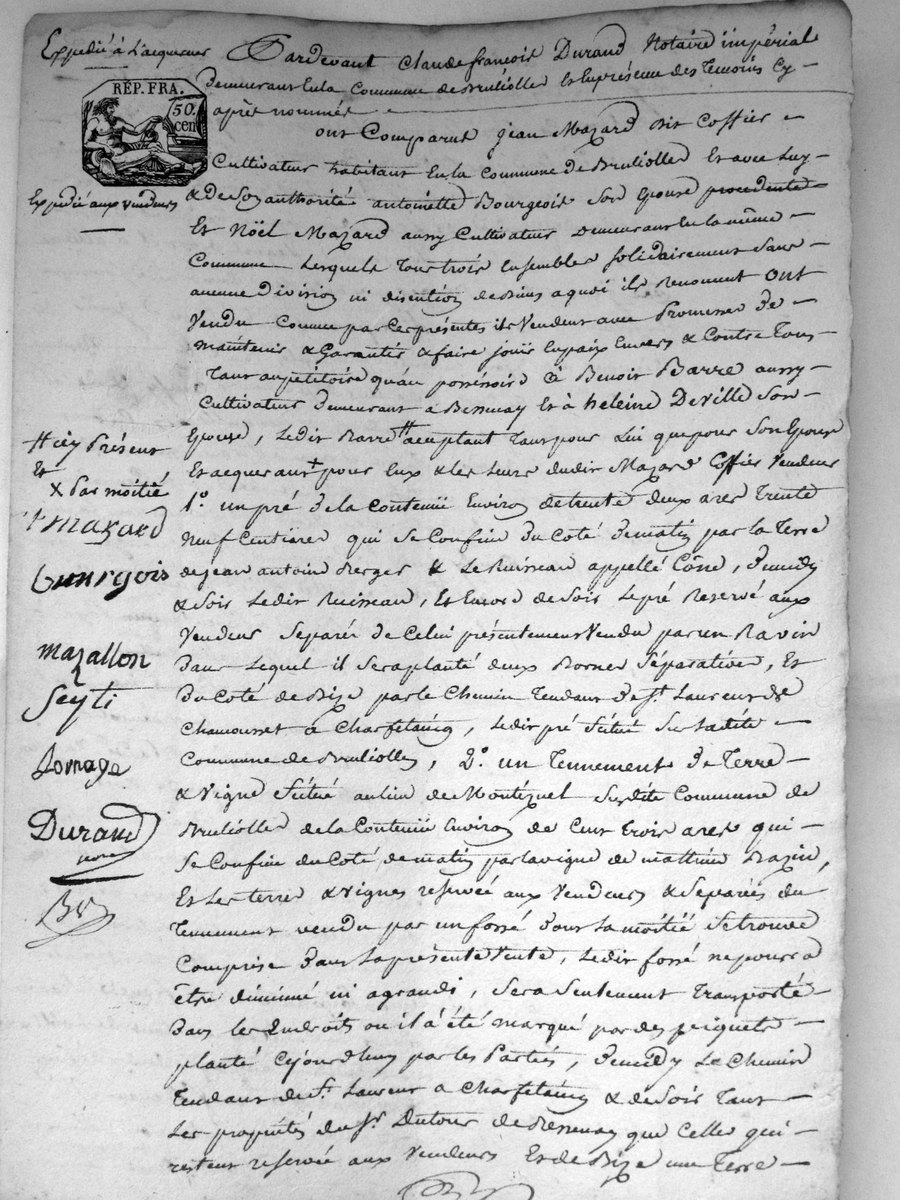 Expedié à l'acquereur
RÉP. FRA.
50.
cen
Expedié aux vendeurs
Pardevant Claude françois Durand Notaire impérial
Demeurant En la Commune de Brulliolles Et En présence des Temoins Cy
après nommés
ont Comparus jean Mazard dit Coffier
Cultivateur habitant En la Commune de Brulliolles Et avec Luy
& de Son authorité antoinette Bourgeois Son Epouse procedente
Et Nöël Mazard aussy Cultivateur Demeurant En la même
Commune Lesquels Tous trois Ensembles Solidairement Sans
aucune Division ni discution de Biens a quoi ils Renoncent ont
Vendu Comme par Ces présentes ils Vendent avec Promesse de
maintenir & Garantir & faire jouir En paix Envers & Contre Tous
Tant au petitoire qu'au possessoire à Benoit Barre aussy
Cultivateur Demeurant à Bessenay Et à heleine Deville Son
Epouse, Ledit Barre # acceptant Tant pour Lui que pour Son Epouse
Et acquerant + pour Eux & Les Leurs dudit Mazard Coffier Vendeur
1.º un pré de la Contenue Environ de trente deux ares Trente
Neuf Centiares qui Se Confine Du Coté De matin par la Terre
de jean antoine Berger & Le Ruisseau appellé Cône, De midy
& Soir Ledit Ruisseau, Et Encore de Soir Le pré Reservé aux
Vendeur Separée de Celui présentement Vendu par un Ravin
Dans Lequel il Sera planté deux Bornes Séparatives, Et
Du Coté de Bize par le Chemin Tendant De St. Laurent de
Chamousset à Charfetaing, Ledit pré Situé Sur Ladite
Commune de Brulliolles, 2.º un Tennement De Terre
& Vigne Situé au lieu de Montezuel Susdite Commune de
Brulliolles de la Contenue Environ de Cent trois ares qui
Se Confine du Coté de matin par la vigne de mathieu Razin,
Et Les terres & vignes reservée aux Vendeurs & Separées du
Tennement vendu par un fossé Dont La moitié Se trouve
Comprise Dans La présente Vente, Ledit fossé ne pourra
être diminué ni agrandi, Sera Seulement Transporté
Dans Les Endroits ou il à été marqué par des piquets
planté Cejourdhuy par les Parties, De midy Le Chemin
Tendant de St. Laurent a Charfetaing & de Soir Tant
Les propriétés du Sr. Dutour de Bessenay que Celles qui
restent reservée aux Vendeurs Et de Bize une Terre
# icy Présent
Et
X Par moitié
Mazard
bourgois
mazallon
Seyti
Domage
Durand